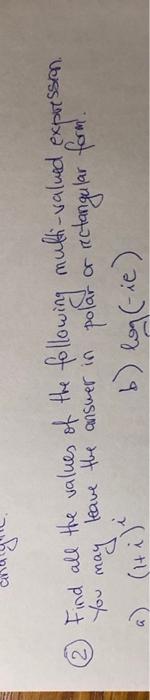 ② Find all the values of the following multi-valued expression.
You may leave the answer in polar or rectangular form.
a) (1+i)^i b) log(-ie)